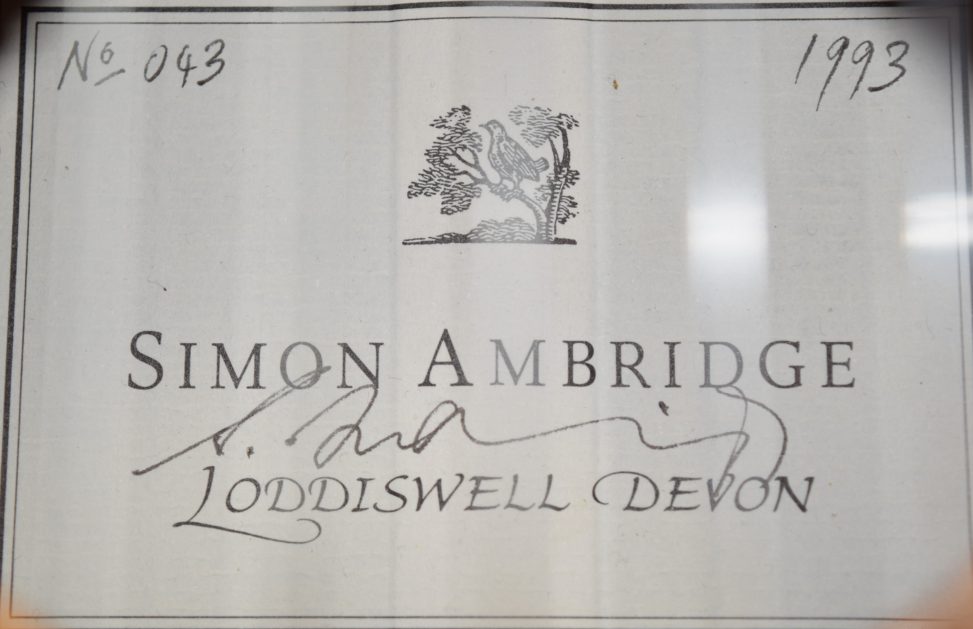 Nº 043
1993
SIMON AMBRIDGE
LODDISWELL DEVON